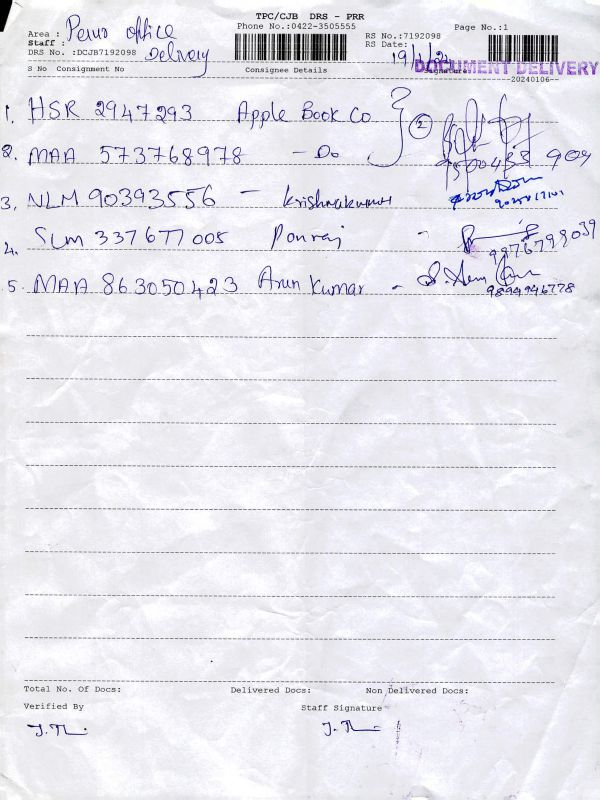 TPC/CJB DRS - PRR
Area : Perur Office Phone No.:0422-3505555 RS No.:7192098 Page No.:1
Staff : Delivery RS Date: 19/1/24
DRS No. :DCJB7192098
DOCUMENT DELIVERY
S No Consignment No Consignee Details Signature
--20240106--
1. HSR 2947293 Apple Book Co } 2
2. MAA 573768978 - Do 
3. NLM 90393556 - Krishnakumar
4. SLM 337677005 Ponraj -
9976798039
5. MAA 863050423 Arun Kumar -
9894946778
Total No. Of Docs: Delivered Docs: Non Delivered Docs:
Verified By Staff Signature